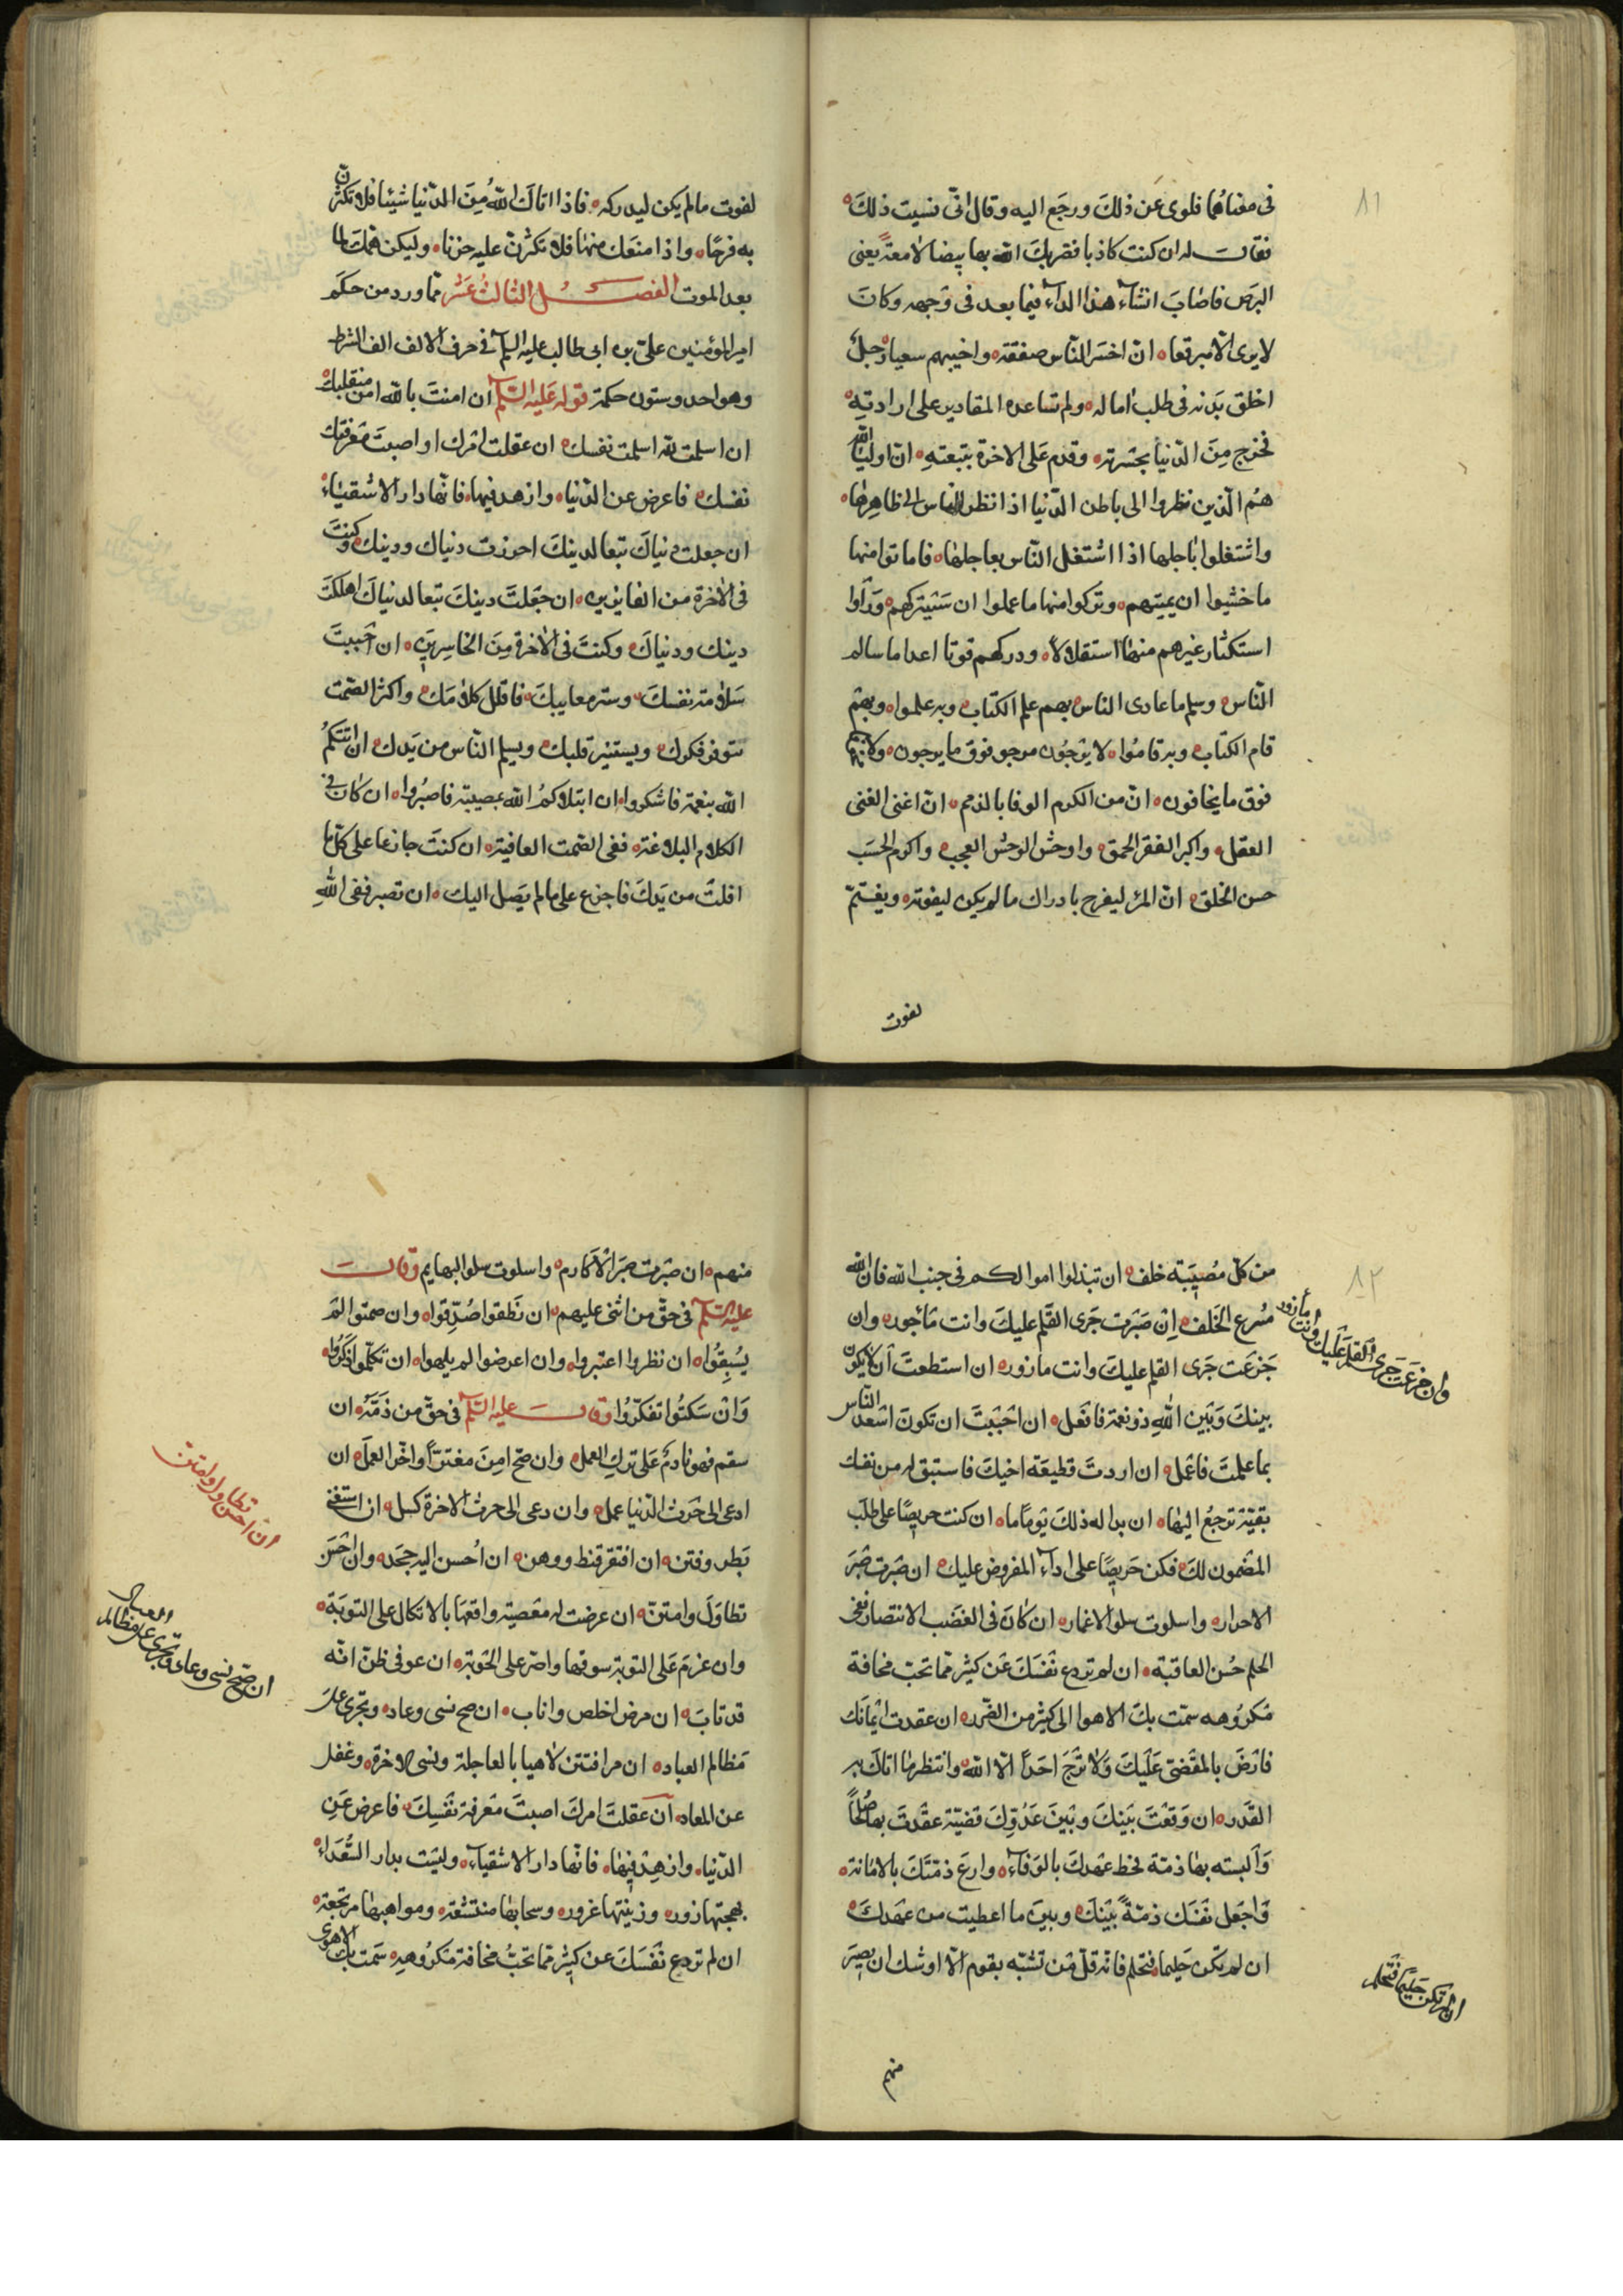 ٨١
في معناهما فلوى عن ذلك ورجع اليه وقال اني نسيت ذلك
فقال له ان كنت كاذبا فضربك الله بها بيضا لامعة يعني
البرص فاصاب انشاء هذا الداء فيما بعد في وجهه وكان
لا يرى الا مبرقعا ان اخسر الناس صفقة واخيبهم سعيا رجل
اخلق بدنه في طلب اماله ولم تساعده المقادير على ارادته
فخرج من الدنيا بحسرته وقدم على الاخرة بتبعته ان اولياء الله
هم الذين نظروا الى باطن الدنيا اذا نظر الناس الى ظاهرها
واشتغلوا باجلها اذا اشتغل الناس بعاجلها فاماتوا منها
ما خشيوا ان يميتهم وتركوا منها ما علموا ان سيتركهم وراوا
استكثار غيرهم منها استقلالا ودركهم فوتا اعدا ما سالم
الناس وسلم ما عادى الناس بهم علم الكتاب وبه علموا وبهم
قام الكتاب وبه قاموا لا يرجون مرجو فوق ما يرجون ولا
فوق ما يخافون ان من الكرم الوفا بالذمم ان اغنى الغنى
العقل واكبر الفقر الحمق واوحش الوحش العجب واكرم الحسب
حسن الخلق ان المرء ليفرح بادراك ما لم يكن ليفوته ويغتم
لفوت
لفوت ما لم يكن ليدركه فاذا اتاك الله من الدنيا شيئا فلا تكثرن
به فرحا واذا منعك منها فلا تكثرن عليه حزنا وليكن همك لما
بعد الموت الفصل الثالث عشر مما ورد من حكم
امير المؤمنين علي بن ابي طالب عليه السلم في حرف الالف الف الشرط
وهو احد وستون حكمة قوله عليه السلم ان امنت بالله امن منقلبك
ان اسلمت لله اسلمت نفسك ان عقلت امرك او اصبت معرفتك
نفسك فاعرض عن الدنيا وازهد فيها فانها دار الاشقياء
ان جعلت دنياك تبعا لدينك احرزت دنياك ودينك وكنت
في الاخرة من الفايزين ان جعلت دينك تبعا لدنياك اهلكت
دينك ودنياك وكنت في الاخرة من الخاسرين ان احببت
سلامة نفسك وستر معايبك فاقلل كلامك واكثر الصمت
يتوفر فكرك ويستنير قلبك ويسلم الناس من يدك ان اتتكم
الله بنعمة فاشكروا ان ابتلاكم الله بمصيبة فاصبروا ان كان في
الكلام البلاغة ففي الصمت العافية ان كنت جازعا على كل ما
افلت من يدك فاجزع على ما لم يصل اليك ان تصبر ففي الله
٨٢
من كل مصيبة خلف ان تبذلوا اموالكم في جنب الله فان الله
مسرع الخلف ان صبرت جرى القلم عليك وانت مأجور وان
جزعت جرى القلم عليك وانت مازور ان استطعت ان لا يكون
بينك وبين الله ذو نعمة فافعل ان احببت ان تكون اسعد الناس
بما علمت فاعمل ان اردت قطيعة اخيك فاستبق له من نفسك
بقية ترجع اليها ان بدا له ذلك يوما ما ان كنت حريصا على طلب
المضمون لك فكن حريصا على اداء المفروض عليك ان صبرت صبر
الاحرار واسلوت سلو الاغمار ان كان في الغضب الانتصار ففي
الحلم حسن العاقبة ان لم تردع نفسك عن كثير مما تحب مخافة
مكروهه سمت بك الاهوا الى كثير من الضرر ان عقدت ايمانك
فارض بالمقضي عليك ولا ترج احدا الا الله وانتظر ما اتاك به
القدر ان وقعت بينك وبين عدوك قضية عقدت بها صلحا
والبسته بها ذمة فحط عهدك بالوفاء وارع ذمتك بالامانة
واجعل نفسك ذمة بينك وبين ما اعطيت من عهدك
ان لم تكن حليما فتحلم فانه قل من تشبه بقوم الا اوشك ان يصير
منهم
وان جزعت جرى القلم عليك وانت مأزور
ان لم تكن حليما فتحلم
منهم ان صبرت صبر الاكارم واسلوت سلو البهايم وقال
عليه السلم في حق من اثنى عليهم ان نطقوا صدقوا وان صمتوا لم
يسبقوا ان نظروا اعتبروا وان اعرضوا لم يلهوا ان تكلموا ذكروا
وان سكتوا تفكروا وقال عليه السلم في حق من ذمه ان
سقم فهو نادم على ترك العمل وان صح امن مغترا واخر العمل ان
ادعى الى حرث الدنيا عمل وان دعى الى حرث الاخرة كسل ان استغنى
بطر وفتن ان افتقر قنط ووهن ان احسن اليه جحد وان احسن
تطاول وامتن ان عرضت له معصية واقعها بالاتكال على التوبة
وان عزم على التوبة سوفها واصر على الحوبة ان عوفي ظن انه
قد تاب ان مرض اخلص واناب ان صح نسى وعاد وتجرى على
مظالم العباد ان مرا فتتن لاهيا بالعاجلة ونسى الاخرة وغفل
عن المعاد ان عقلت امرك اصبت معرفة نفسك فاعرض عن
الدنيا وازهد فيها فانها دار الاشقياء وليست بدار السعداء
بهجتها زور وزينتها غرور وسحابها منقشعة ومواهبها مرتجعة
ان لم تردع نفسك عن كثير مما تحب مخافة مكروهه سمت بك الاهوى
ان احسن تطاول وامتن
ان صح نسى وعاد وتجرى على مظالم العباد